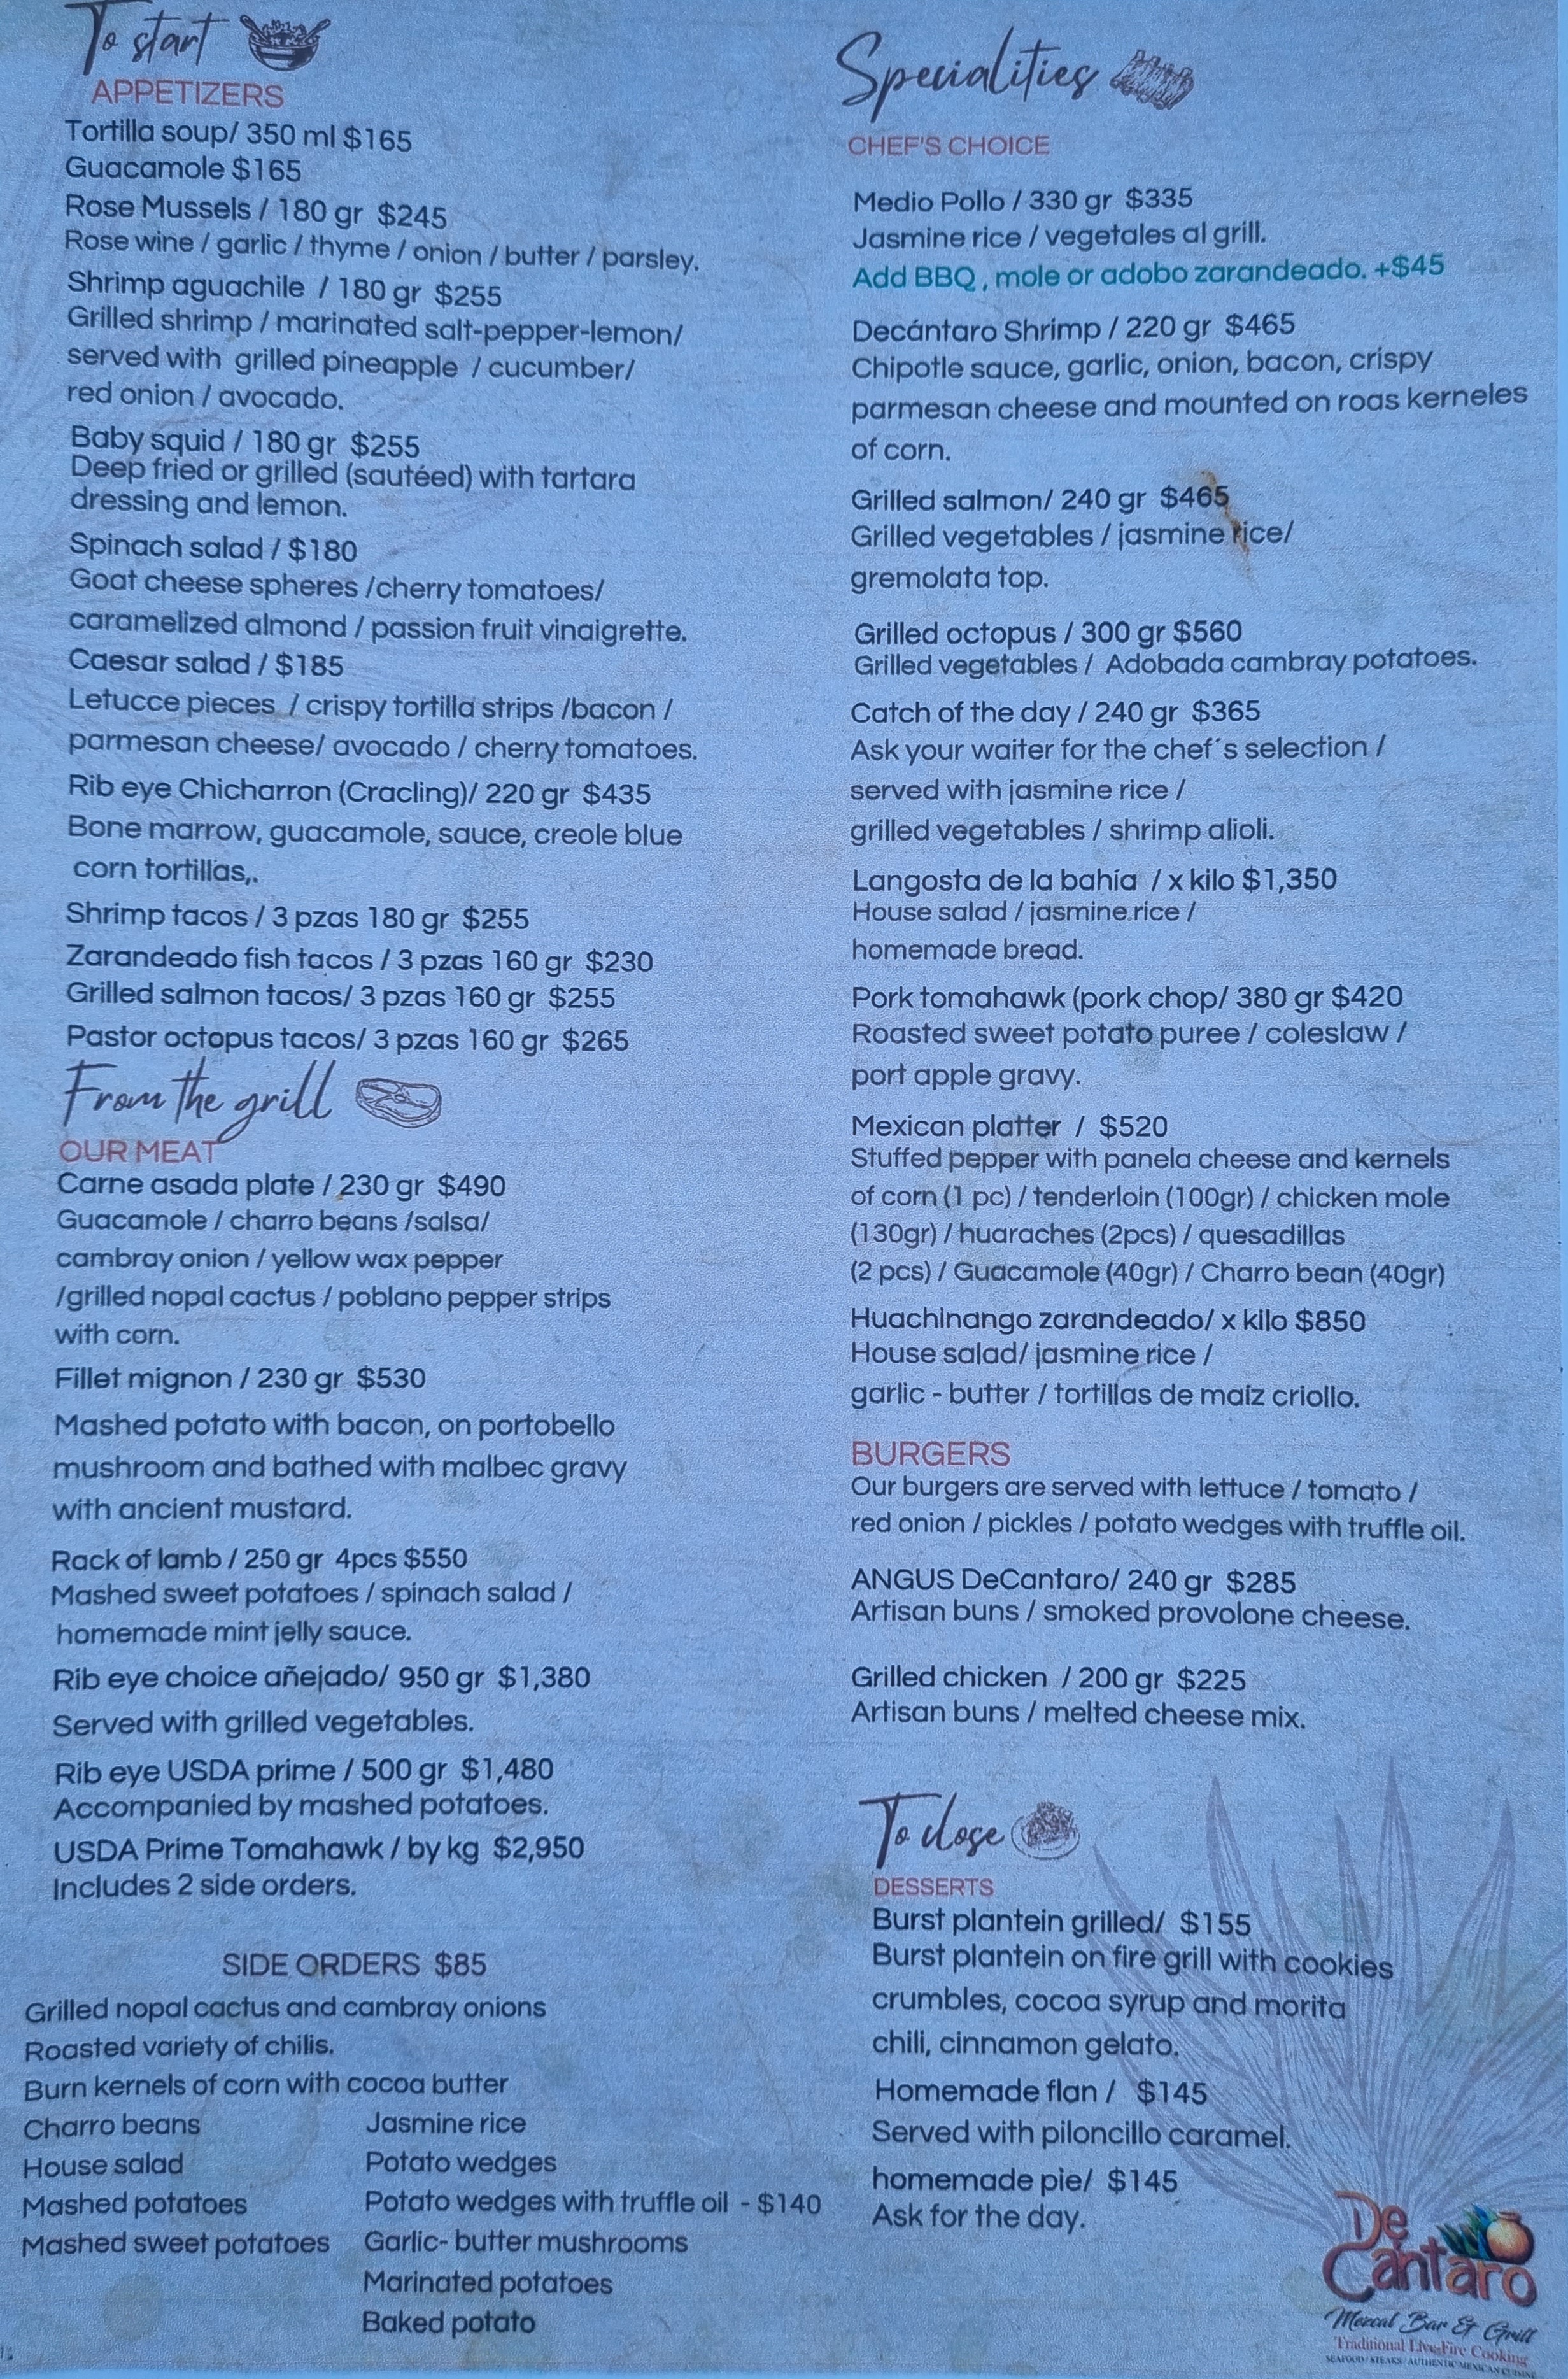 To start
APPETIZERS
Tortilla soup/ 350 ml $165
Guacamole $165
Rose Mussels / 180 gr $245
Rose wine / garlic / thyme / onion / butter / parsley.
Shrimp aguachile / 180 gr $255
Grilled shrimp / marinated salt-pepper-lemon/
served with grilled pineapple / cucumber/
red onion / avocado.
Baby squid / 180 gr $255
Deep fried or grilled (sautéed) with tartara
dressing and lemon.
Spinach salad / $180
Goat cheese spheres /cherry tomatoes/
caramelized almond / passion fruit vinaigrette.
Caesar salad / $185
Letucce pieces / crispy tortilla strips /bacon /
parmesan cheese/ avocado / cherry tomatoes.
Rib eye Chicharron (Cracling)/ 220 gr $435
Bone marrow, guacamole, sauce, creole blue
corn tortillas,.
Shrimp tacos / 3 pzas 180 gr $255
Zarandeado fish tacos / 3 pzas 160 gr $230
Grilled salmon tacos/ 3 pzas 160 gr $255
Pastor octopus tacos/ 3 pzas 160 gr $265
From the grill
OUR MEAT
Carne asada plate / 230 gr $490
Guacamole / charro beans /salsa/
cambray onion / yellow wax pepper
/grilled nopal cactus / poblano pepper strips
with corn.
Fillet mignon / 230 gr $530
Mashed potato with bacon, on portobello
mushroom and bathed with malbec gravy
with ancient mustard.
Rack of lamb / 250 gr 4pcs $550
Mashed sweet potatoes / spinach salad /
homemade mint jelly sauce.
Rib eye choice añejado/ 950 gr $1,380
Served with grilled vegetables.
Rib eye USDA prime / 500 gr $1,480
Accompanied by mashed potatoes.
USDA Prime Tomahawk / by kg $2,950
Includes 2 side orders.
SIDE ORDERS $85
Grilled nopal cactus and cambray onions
Roasted variety of chilis.
Burn kernels of corn with cocoa butter
Charro beans
House salad
Mashed potatoes
Mashed sweet potatoes
Jasmine rice
Potato wedges
Potato wedges with truffle oil - $140
Garlic- butter mushrooms
Marinated potatoes
Baked potato
Specialities
CHEF'S CHOICE
Medio Pollo / 330 gr $335
Jasmine rice / vegetales al grill.
Add BBQ , mole or adobo zarandeado. +$45
Decántaro Shrimp / 220 gr $465
Chipotle sauce, garlic, onion, bacon, crispy
parmesan cheese and mounted on roas kerneles
of corn.
Grilled salmon/ 240 gr $465
Grilled vegetables / jasmine rice/
gremolata top.
Grilled octopus / 300 gr $560
Grilled vegetables / Adobada cambray potatoes.
Catch of the day / 240 gr $365
Ask your waiter for the chef´s selection /
served with jasmine rice /
grilled vegetables / shrimp alioli.
Langosta de la bahía / x kilo $1,350
House salad / jasmine rice /
homemade bread.
Pork tomahawk (pork chop/ 380 gr $420
Roasted sweet potato puree / coleslaw /
port apple gravy.
Mexican platter / $520
Stuffed pepper with panela cheese and kernels
of corn (1 pc) / tenderloin (100gr) / chicken mole
(130gr) / huaraches (2pcs) / quesadillas
(2 pcs) / Guacamole (40gr) / Charro bean (40gr)
Huachinango zarandeado/ x kilo $850
House salad/ jasmine rice /
garlic - butter / tortillas de maíz criollo.
BURGERS
Our burgers are served with lettuce / tomato /
red onion / pickles / potato wedges with truffle oil.
ANGUS DeCantaro/ 240 gr $285
Artisan buns / smoked provolone cheese.
Grilled chicken / 200 gr $225
Artisan buns / melted cheese mix.
To close
DESSERTS
Burst plantein grilled/ $155
Burst plantein on fire grill with cookies
crumbles, cocoa syrup and morita
chili, cinnamon gelato.
Homemade flan / $145
Served with piloncillo caramel.
homemade pie/ $145
Ask for the day.
De
Cántaro
Mezcal Bar & Grill
Traditional Live-Fire Cooking
SEAFOOD / STEAKS / AUTHENTIC MEXICAN CUISINE